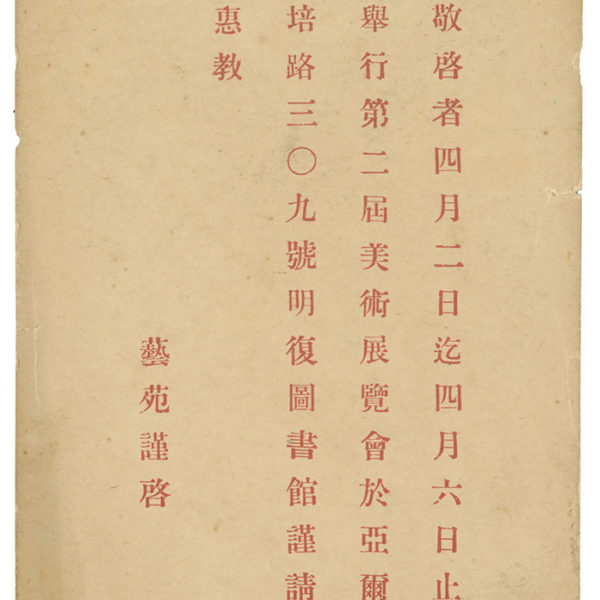 敬啓者四月二日迄四月六日止
舉行第二屆美術展覽會於亞爾
培路三〇九號明復圖書館謹請
惠教
藝苑謹啓